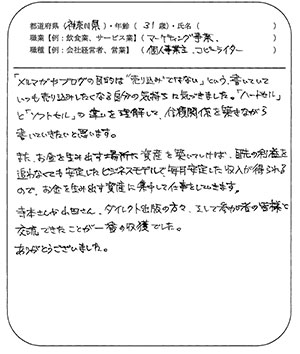 都道府県（神奈川県）・年齢（ 31 歳）・氏名（　　　　）
職業【例：飲食業、サービス業】（マーケティング事業、　　）
職種【例：会社経営者、営業】（個人事業主、コピーライター　）
「メルマガやブログの目的は“売り込み”ではない」という、書いていて
いつも売り込みたくなる自分の気持ちに気づきました。「ハードセル」
と「ソフトセル」の違いを理解して、信頼関係を築きながら
書いていきたいと思います。
また、お金を生み出す場所に資産を築いていけば、目先の利益を
追わなくても安定したビジネスモデルで毎月安定した収入が得られる
ので、お金を生み出す資産に集中して仕事をしていきます。
寺本さんや山田さん、ダイレクト出版の方々、そして参加者の皆様と
交流できたことが一番の収獲でした。
ありがとうございました。